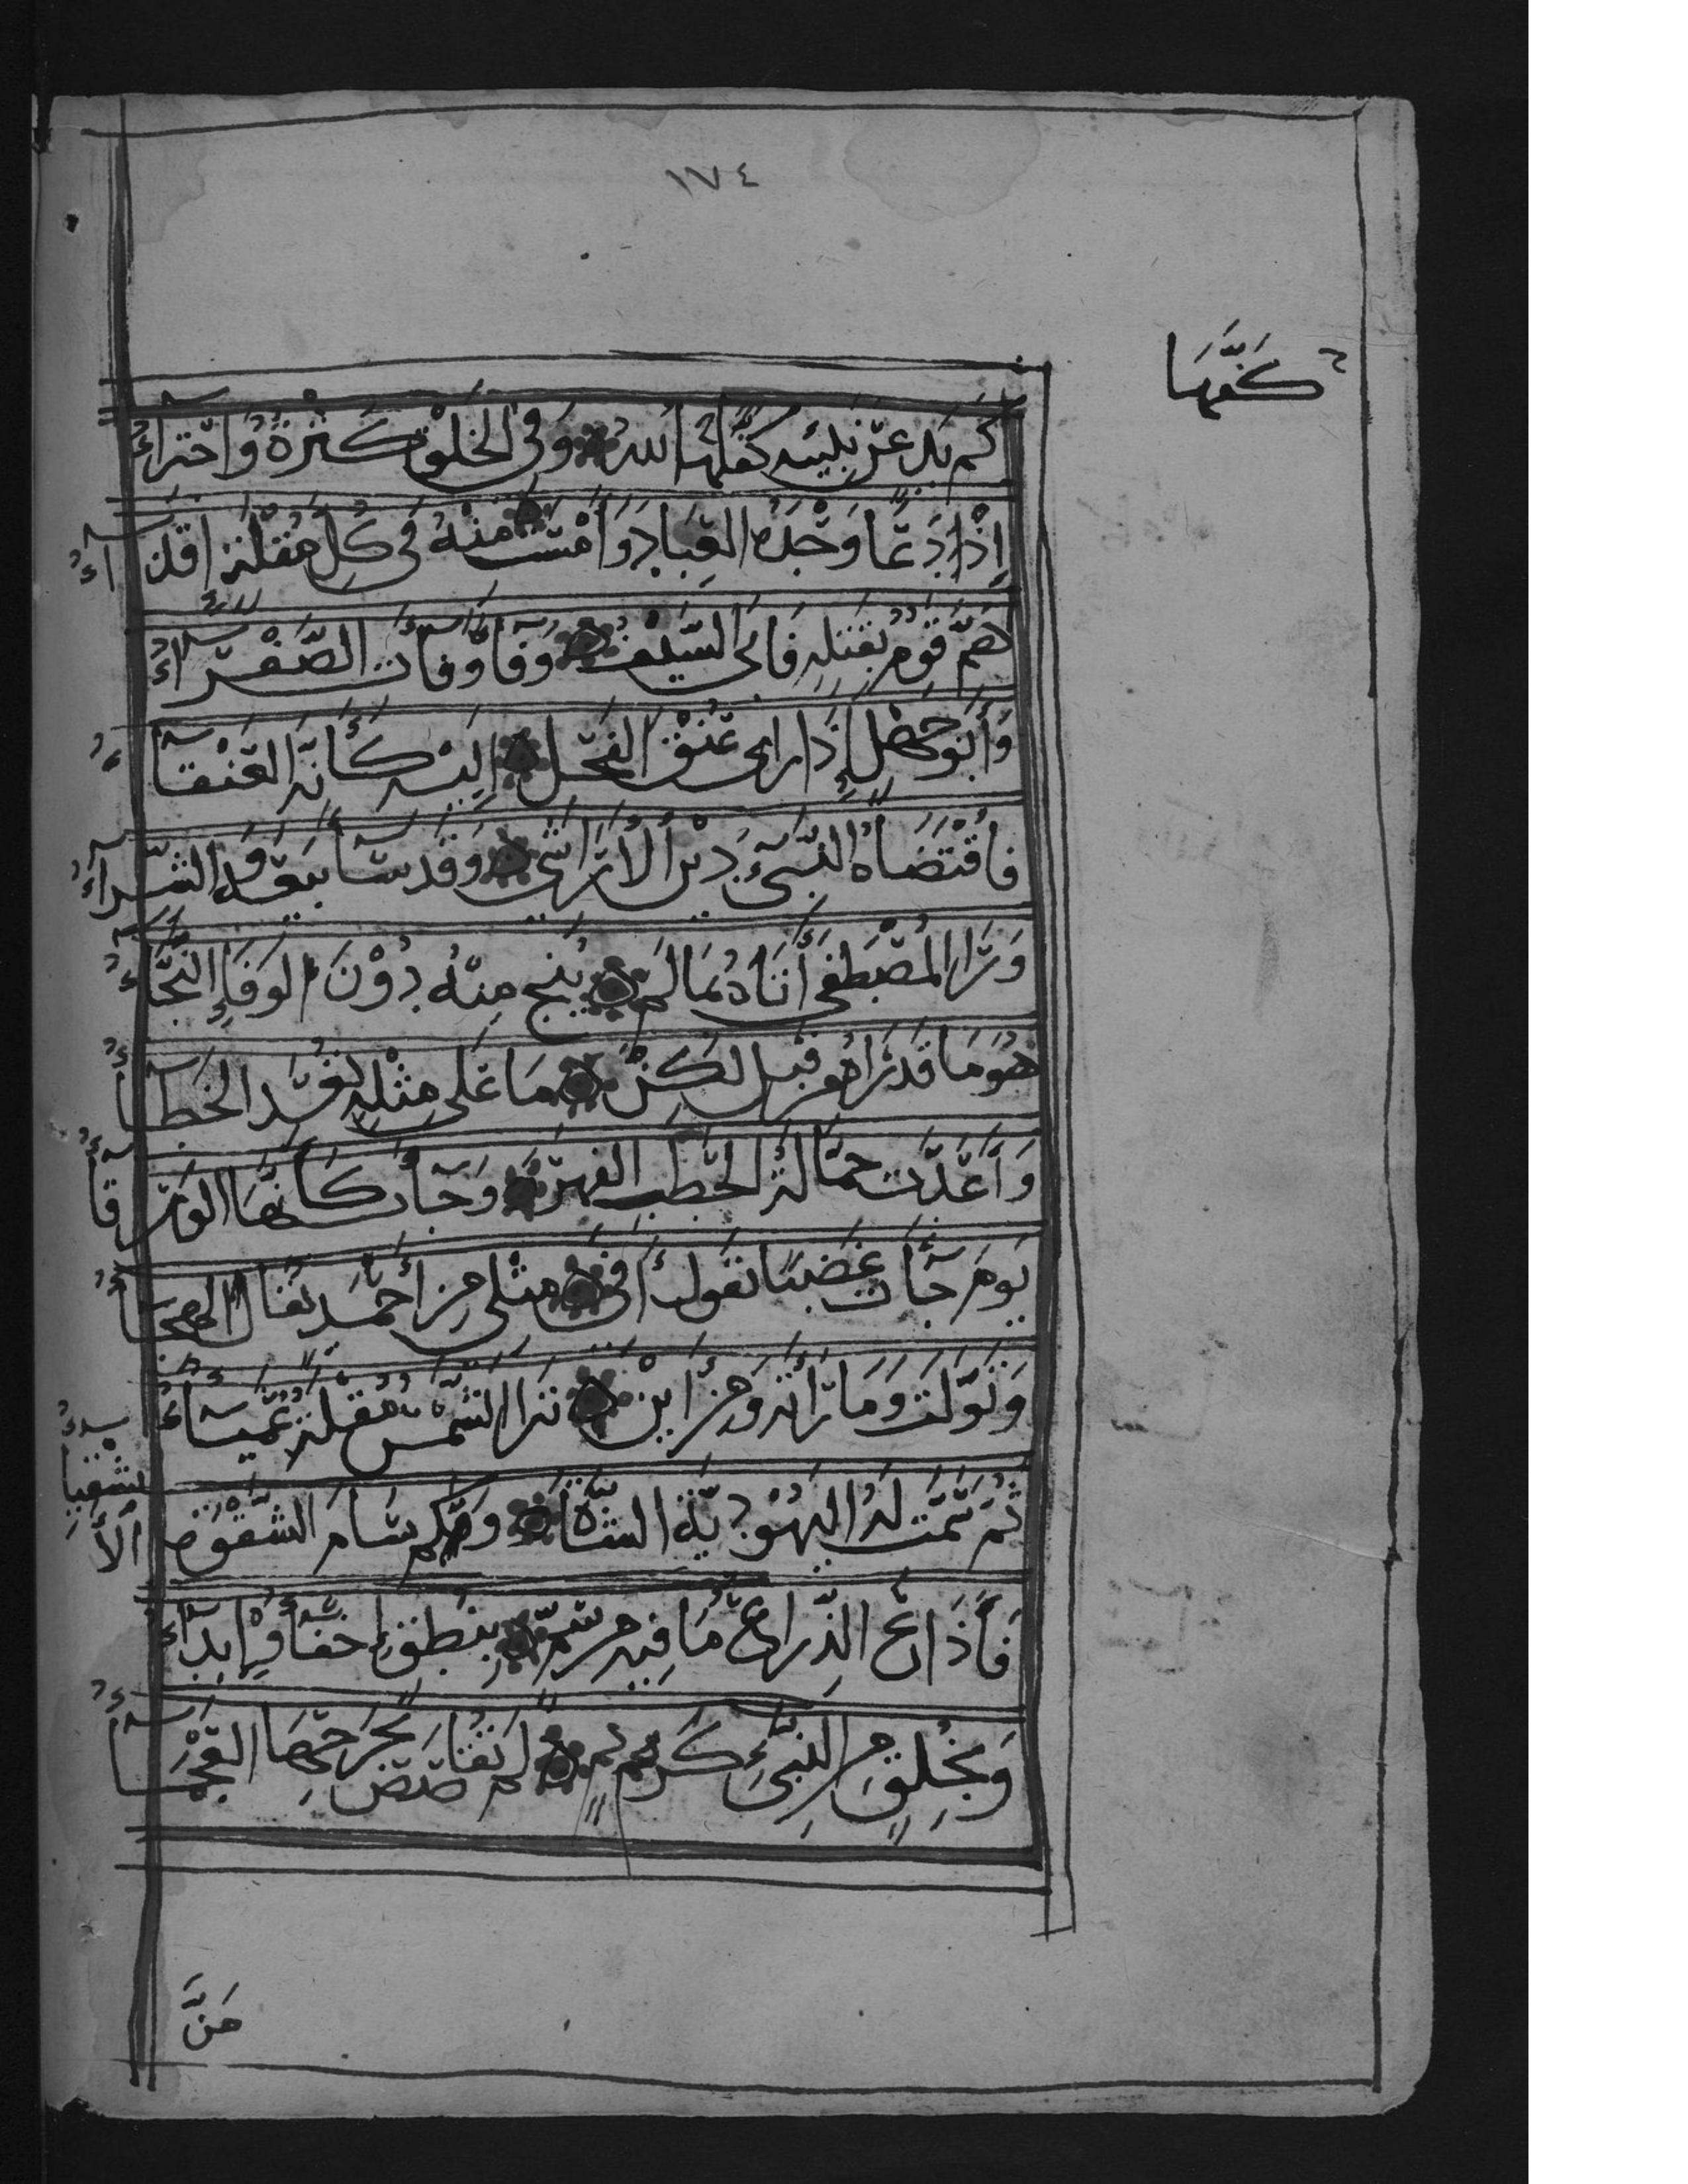 ١٧٤
كَفَّهَا
كَمْ يَدٍ عَنْ نَبِيِّهِ كَفَّهَا اللهُ وَفِى الخَلْقِ كَثْرَةٌ وَاجْتِرَآءُ
إِذْ دَعَا وَحْدَهُ العِبَادَ وَأَمْسَتْ مِنْهُ فِى كُلِّ مُقْلَةٍ اقْذَآءُ
هَمَّ قَوْمٌ بِقَتْلِهِ فَأَبَى السَّيْفُ وَفَآءً وَفَآءَتِ الصَّفْوَآءُ
وَأَبُو جَهْلٍ إِذْ رَأى عُنُقَ الفَحْلِ إِلَيْهِ كَأَنَّهُ العَنْقَآءُ
فَاقْتَضَاهُ النَّبِىُّ دَيْنَ الأَرَاشِى وَقَدْ سَآءَ بَيْعُهُ وَالشِّرَآءُ
وَرَأَى المُصْطَفَى أَتَاهُ بِمَا لَمْ يُنْجِ مِنْهُ دُوْنَ الوَفَاءِ النَّجَآءُ
هُوَ مَا قَدْ رَاهُ مِنْ قَبْلُ لَكِنْ مَا عَلَى مِثْلِهِ يُعَدُّ الخَطَآءُ
وَأَعَدَّتْ حَمَّالَةُ الحَطَبِ الفِهْرَ وَجَآءَتْ كَأَنَّهَا الوَرْقَآءُ
يَوْمَ جَآءَتْ غَضْبَا تَقُولُ أَفِى مِثْلِى مِنْ أَحْمَدٍ يُقَالُ الهِجَآءُ
وَتَوَلَّتْ وَمَا رَأَتْهُ وَمِنْ أَيْنَ تَرَا الشَّمْسَ مُقْلَةٌ عَمْيَآءُ
ثُمَّ سَمَّتْ لَهُ اليَهُوْدِيَّةُ الشَّاةَ وَكَمْ سَامَ الشَّقْوَةَ الأَشْقِيَآءُ
فَأَذَاعَ الذِّرَاعُ مَا فِيهِ مِنْ سَمٍّ بِنُطْقٍ إِخْفَآؤُهُ إِبْدَآءُ
وَبِخُلْقٍ مِنَ النَّبِىِّ كَرِيْمٍ لَمْ تُقَاصَصْ بِجَرْحِهَا العَجْمَآءُ
مَنَّ